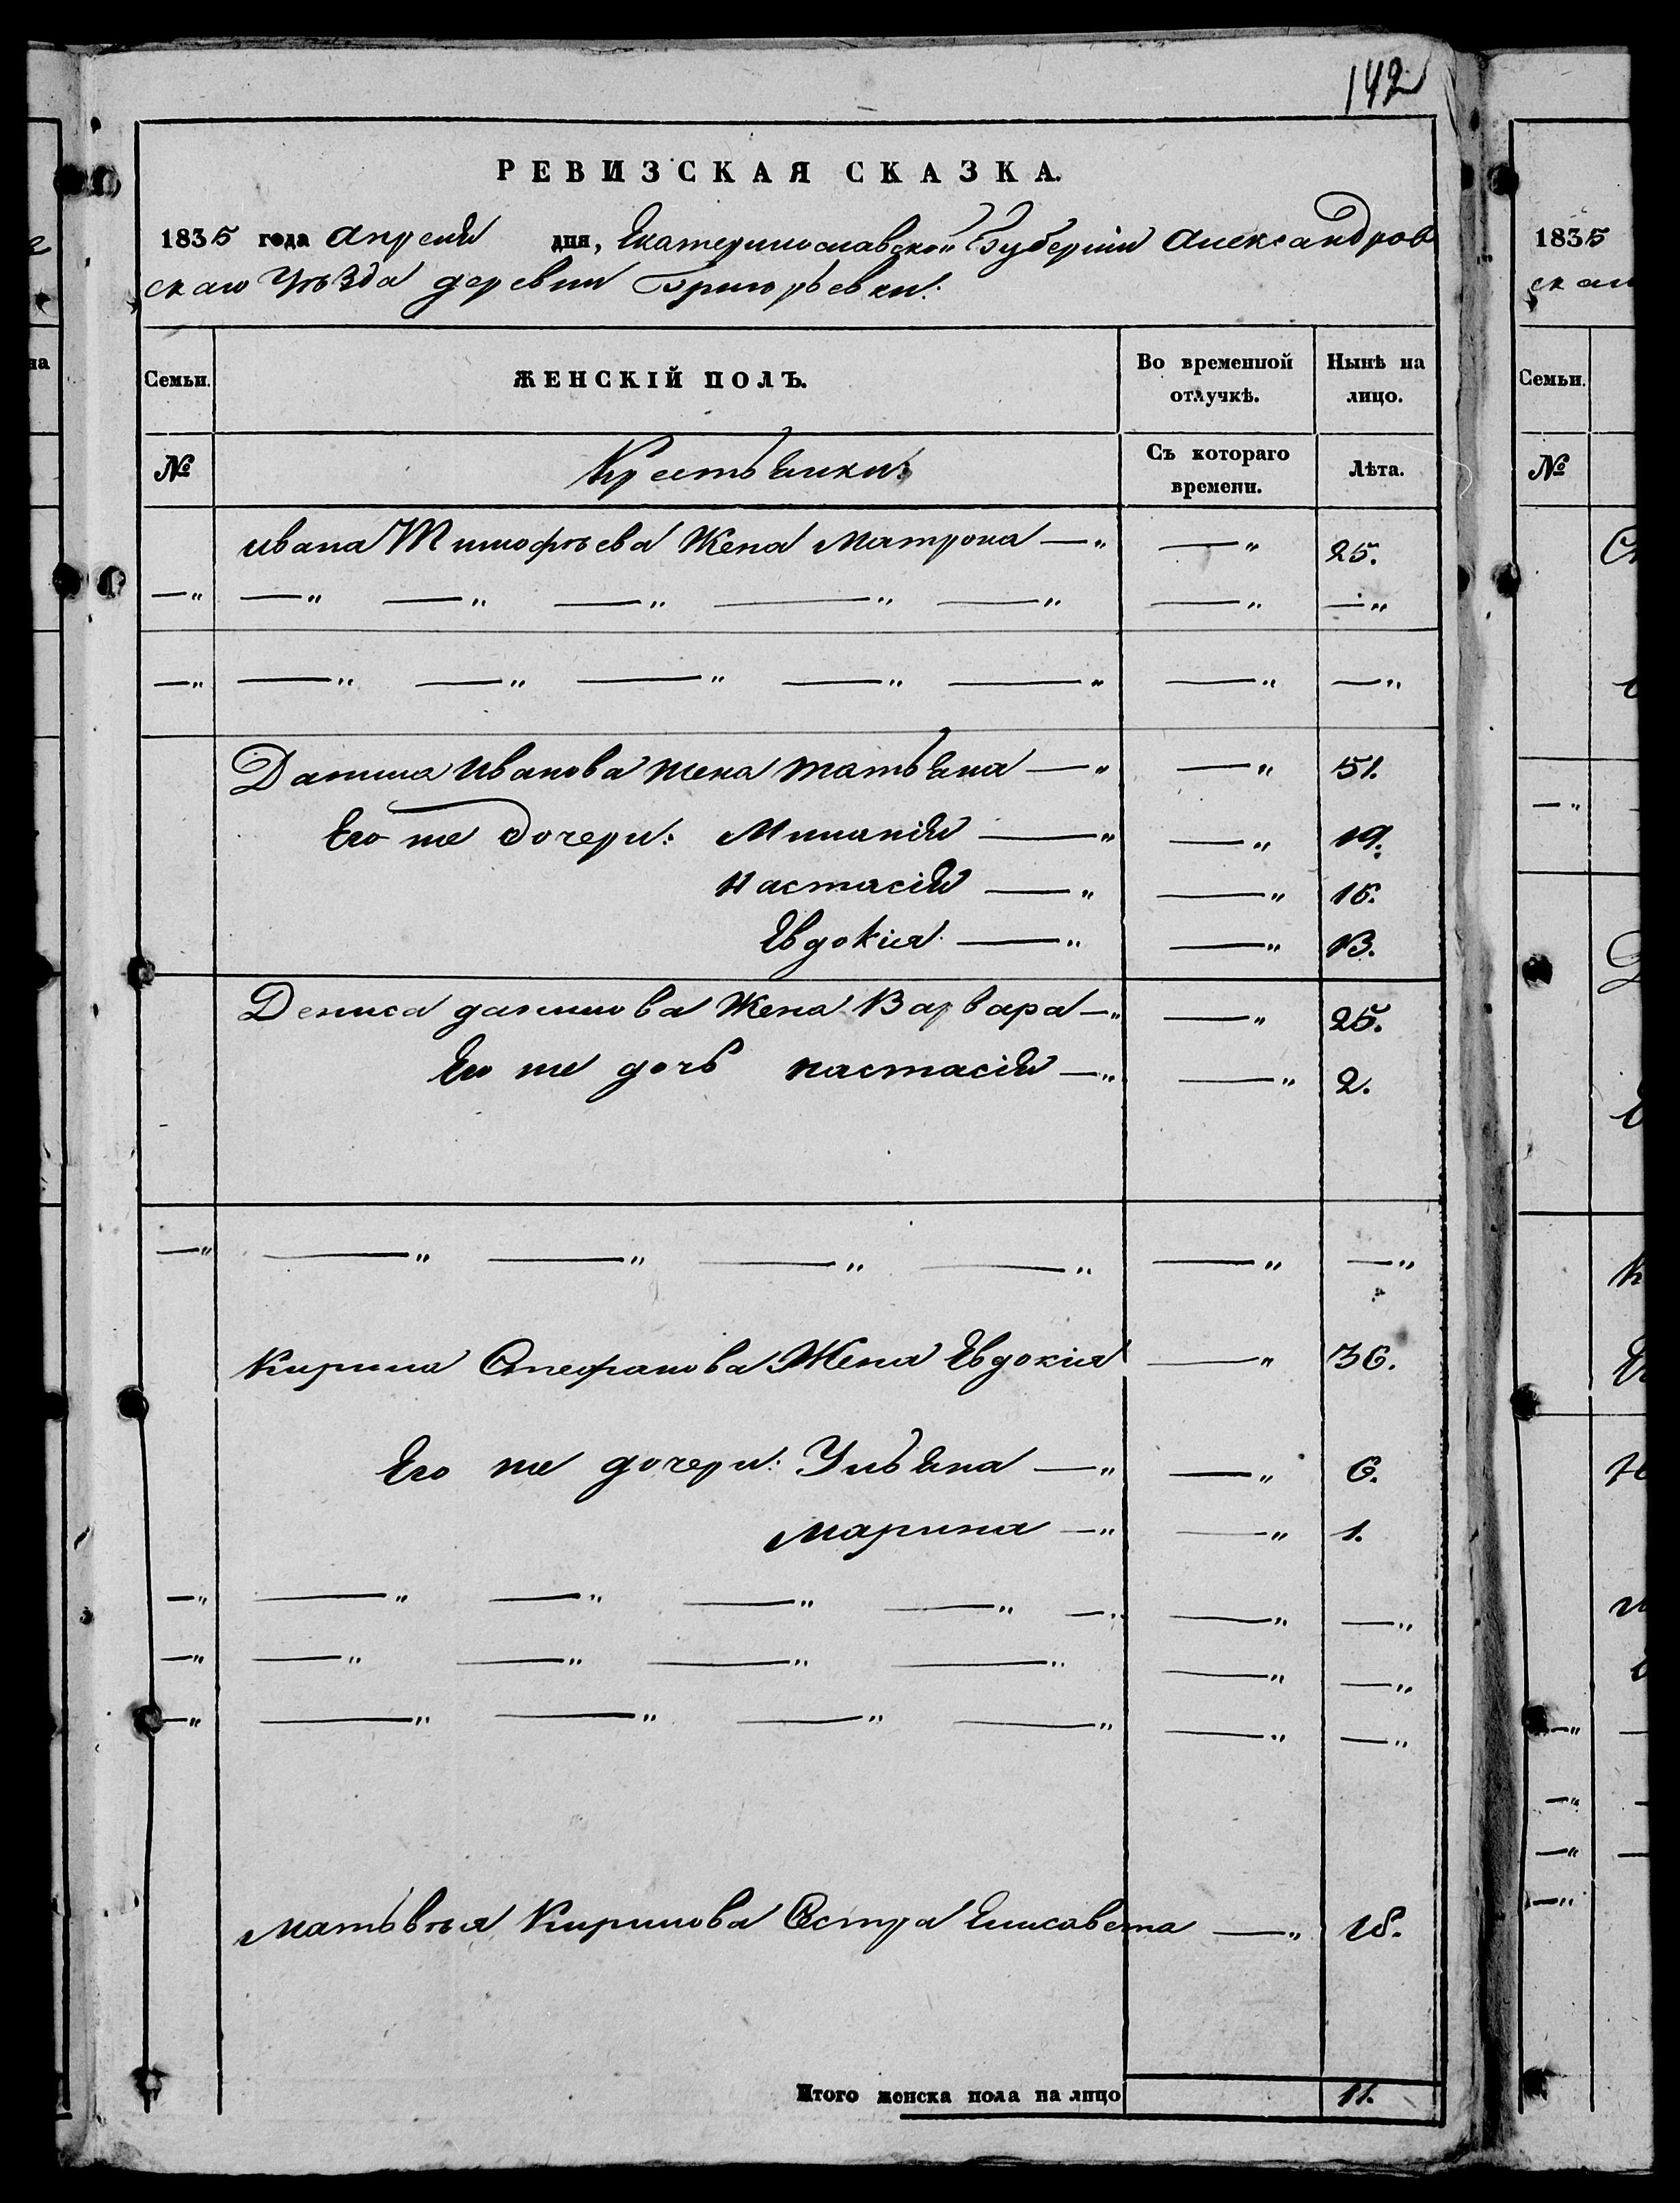 142
РЕВИЗСКАЯ СКАЗКА.
1835 года апреля дня, Екатеринославской Губернии Александров
скаго уѣзда деревни Григорьевки:
Семьи. ЖЕНСКІЙ ПОЛЪ. Во временной отлучкѣ. Нынѣ на лицо.
№ Крестьянки: Съ котораго времени. Лѣта.
ивана Тимофѣева Жена Матрона —„ —„ 25.
—„ —„ —„ —„ —„ —„ —„ —„
—„ —„ —„ —„ —„ —„ —„ —„
Данила Иванова жена татьяна —„ —„ 51.
Его же дочери: Миланія —„ —„ 19.
настасія —„ —„ 15.
Евдокія —„ —„ 13.
Дениса данилова Жена Варвара —„ —„ 25.
Его же дочь настасія —„ —„ 2.
—„ —„ —„ —„ —„ —„ —„
Кирила Стефанова Жена Евдокія —„ 36.
Его же дочери: Ульяна —„ —„ 6.
марина —„ —„ 1.
—„ —„ —„ —„ —„ —„ —„ —„
—„ —„ —„ —„ —„ —„ —„
—„ —„ —„ —„ —„ —„ —„
матьвѣя Кирилова Сестра Елисавета —„ 18.
Итого женска пола на лицо 11.
1835
скаг
Семьи.
№